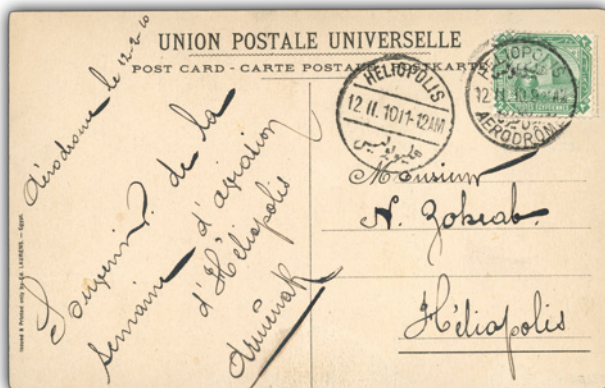 UNION POSTALE UNIVERSELLE
POST CARD - CARTE POSTALE - POSTKARTE
HELIOPOLIS
12.II.10 11-12AM
هليوبوليس
HELIOPOLIS
12.II.10
AERODROME
Aérodrome le 12-2-10
Souvenir de la
semaine d'aviation
d'Héliopolis
Monsieur
N. Zokrab.
Héliopolis
Issued & Printed only by Ed. LAURENS. - Egypt.